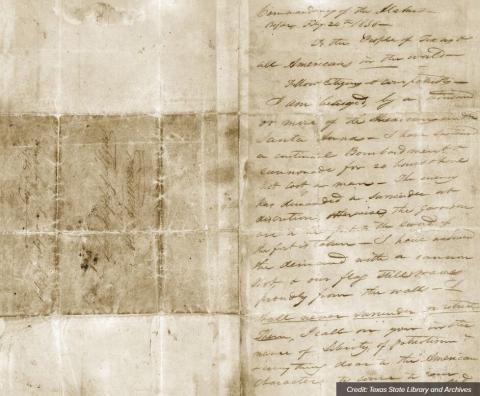 Commandancy of the Alamo
Bejar, Fby. 24th 1836—
To the People of Texas &
all Americans in the world—
Fellow Citizens & compatriots—
I am besieged, by a thousand
or more of the Mexicans under
Santa Anna— I have sustained
a continual Bombardment &
cannonade for 24 hours & have
not lost a man— The enemy
has demanded a surrender at
discretion, otherwise, the garrison
are to be put to the sword, if
the fort is taken— I have answered
the demand with a cannon
shot, & our flag still waves
proudly from the walls— I
shall never surrender or retreat
Then, I call on you in the
name of Liberty, of patriotism &
everything dear to the American
character, to come to our
Credit: Texas State Library and Archives